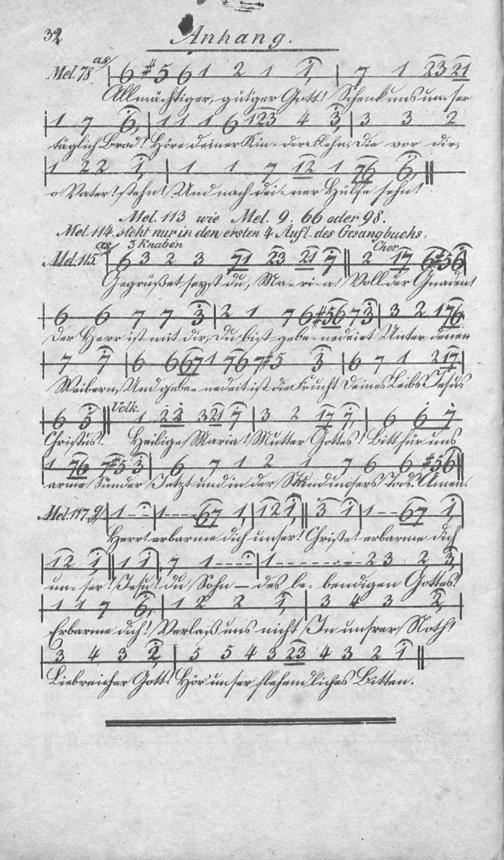 32 Anhang.
Mel. 78 as 6 #5 6 1 2 1 1, 7 1 23 21
Allmächtiger, gütiger Gott! Schenk uns un-ser
1 7 6, 1 1 1 6 123 4 3 3 3 2
täglich Brod! Höre deiner Kin-der Flehn, Die vor dir,
1 2 2 1, 1 1 7 12 1 76 6,
o Vater! stehn! Und nach dei-ner Hülfe sehn!
Mel. 113 wie Mel. 9. 66 oder 98.
Mel. 114. steht nur in den ersten 4 Aufl. des Gesangbuchs.
as 3 Knaben Chor
Mel. 115 6 3 2 3 71 23 21 7 2 17 6#5 6
Gegrüßet seyst du, Ma-ri-a! Voll der Gnaden!
6 6 7 7 3 2 1 7 6 #56 7 3 3 2 1 76
Der Herr ist mit dir, Du bist gebe-nedeiet Unter deinen
7 7 6 6 67 1 76 7#5 3 6 7 1 217
Weibern, Und gebe-nedeit ist die Frucht Deines Leibs Jesus
6 5 Volk. 1 23 321 7 3 2 17 7, 6 6 7
Christus. Heilige Maria! Mutter Gottes! Bitt für uns
1 76 7#5 3 6 7 1 2 7 6 6 #56
arme Sünder Jetzt und in der Stund unsers Tods! Amen.
Mel. 117. g 1 1 67 1, 121 3 1 1 67 1
Herr! erbarme dich unser! Christe! erbarme dich
12 1 1 1, 7 1 1 1 23 2 3
un-ser! Jesu! du Sohn – des le-bendigen Gottes!
1 1 7 6, 1 2 2 1, 3 4 3 2,
Erbarme dich! Verlaß uns nicht In unsrer Noth!
3 4 3 2, 5 5 4 3 23 4 3 2 1
Liebreicher Gott! Hör unser flehendliches Bitten.